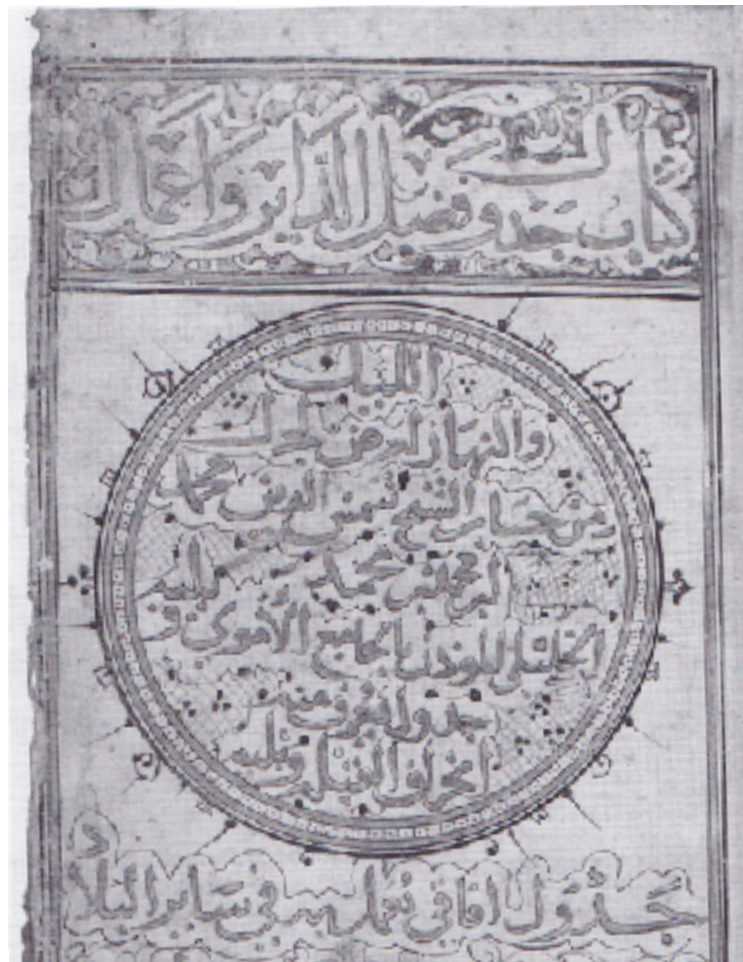 كتاب جدول فضل الداير واعمال
الليل
والنهار لعرض لج ل
من حساب الشيخ شمس الدين محمد
ابن محمد بن محمد
الخليلي المؤذن بالجامع الأموي و
جدول يعرف منه
انحراف القبلة ويليه
جدول افاقي يعمل به في ساير البلاد